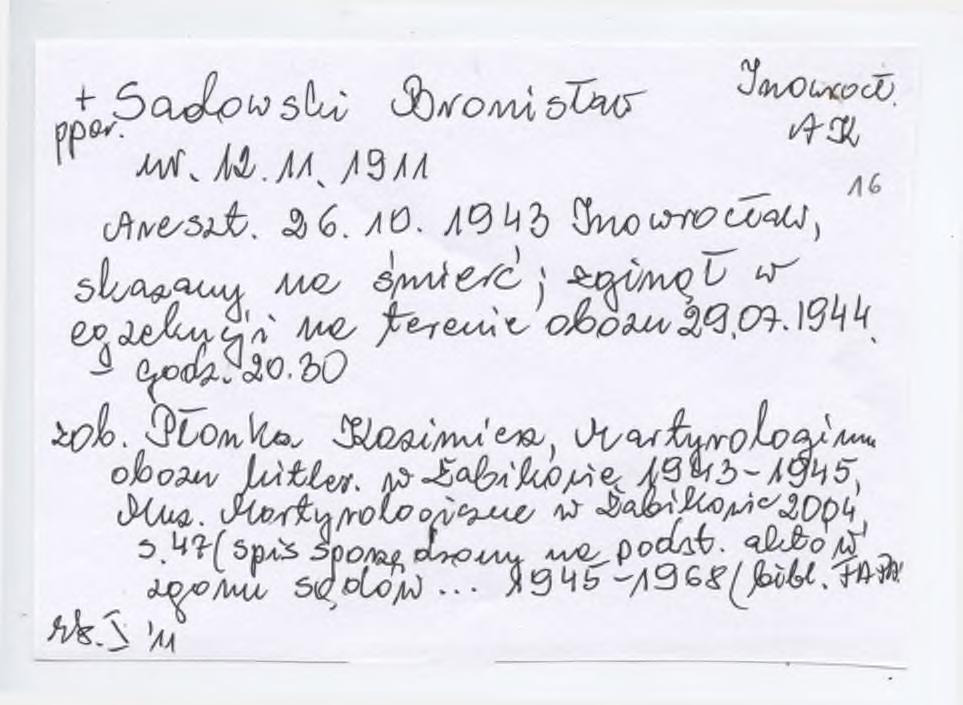 + Sadowski Bronisław Inowrocł.
ppor. AK
ur. 12.11.1911
16
Areszt. 26.10.1943 Inowrocław,
skazany na śmierć; zginął w
egzekucji na terenie obozu 29.07.1944.
– godz. 20.30
zob. Płonka Kazimierz, Martyrologium
obozu hitler. w Żabikowie 1943-1945,
Muz. Martyrologiczne w Żabikowie 2004,
s. 47 (spis sporządzony na podst. aktów
zgonu sądów ... 1945-1968 (bibl.
I '11